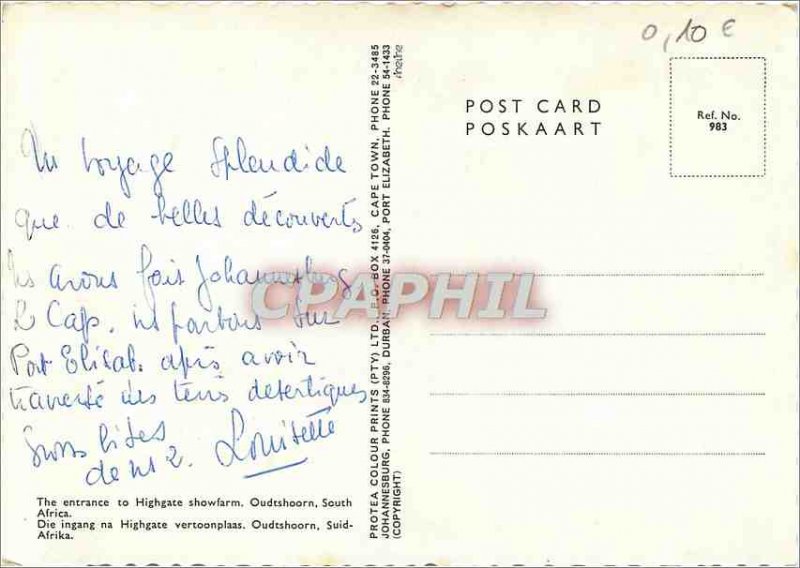 0,10 €
POST CARD
POSKAART
Ref. No.
983
Un voyage splendide
que de belles découvertes
ns avons fais Johannesburg
Le Cap, ns partons sur
Port Elisab. après avoir
traversé des terres désertiques
Gross bises
de ns 2. Louisette
The entrance to Highgate showfarm. Oudtshoorn, South
Africa.
Die ingang na Highgate vertoonplaas. Oudtshoorn, Suid-
Afrika.
PROTEA COLOUR PRINTS (PTY) LTD., P.O. BOX 4126, CAPE TOWN, PHONE 22-3485
JOHANNESBURG, PHONE 834-8296, DURBAN, PHONE 37-0404, PORT ELIZABETH, PHONE 54-1433
(COPYRIGHT)
CPAPHIL